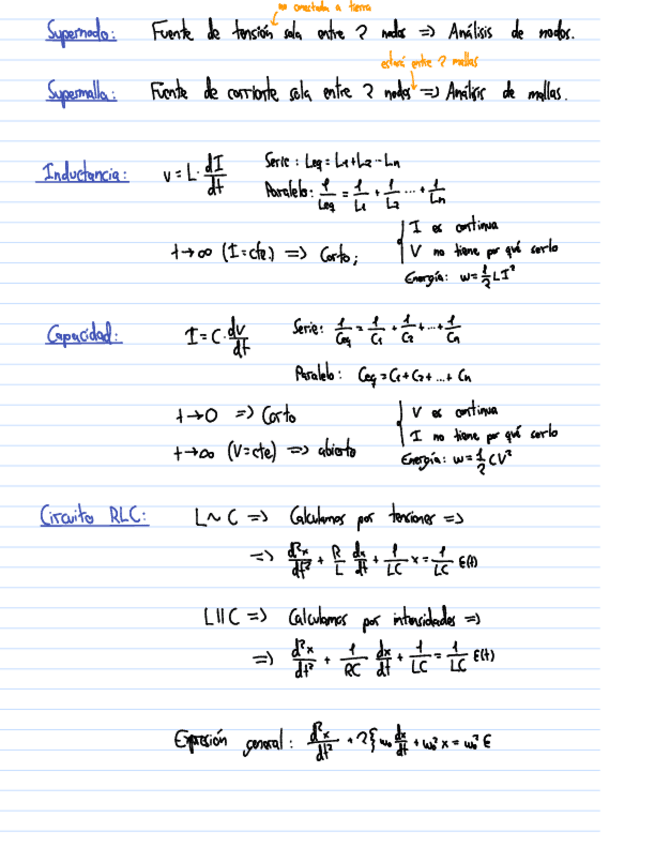 no conectada a tierra
Supernodo: Fuente de tensión sola entre 2 nodos => Análisis de nodos.
estará entre 2 mallas
Supermalla: Fuente de corriente sola entre 2 nodos => Análisis de mallas.
Inductancia: v = L · dI/dt Serie: Leq = L1 + L2 - Ln
Paralelo: 1/Leq = 1/L1 + 1/L2 ... + 1/Ln
t→∞ (I=cte.) => Corto; { I es continua
V no tiene por qué serlo
Energía: w = 1/2 LI²
Capacidad: I = C · dv/dt Serie: 1/Ceq = 1/C1 + 1/C2 + ... + 1/Cn
Paralelo: Ceq = C1 + C2 + ... + Cn
t→0 => Corto { V es continua
t→∞ (V=cte) => abierto I no tiene por qué serlo
Energía: w = 1/2 CV²
Circuito RLC: L~C => Calculamos por tensiones =>
=> d²x/dt² + R/L dx/dt + 1/LC x = 1/LC E(t)
L||C => Calculamos por intensidades =>
=> d²x/dt² + 1/RC dx/dt + 1/LC = 1/LC E(t)
Expresión general: d²x/dt² + 2ξω₀ dx/dt + ω₀² x = ω₀² E